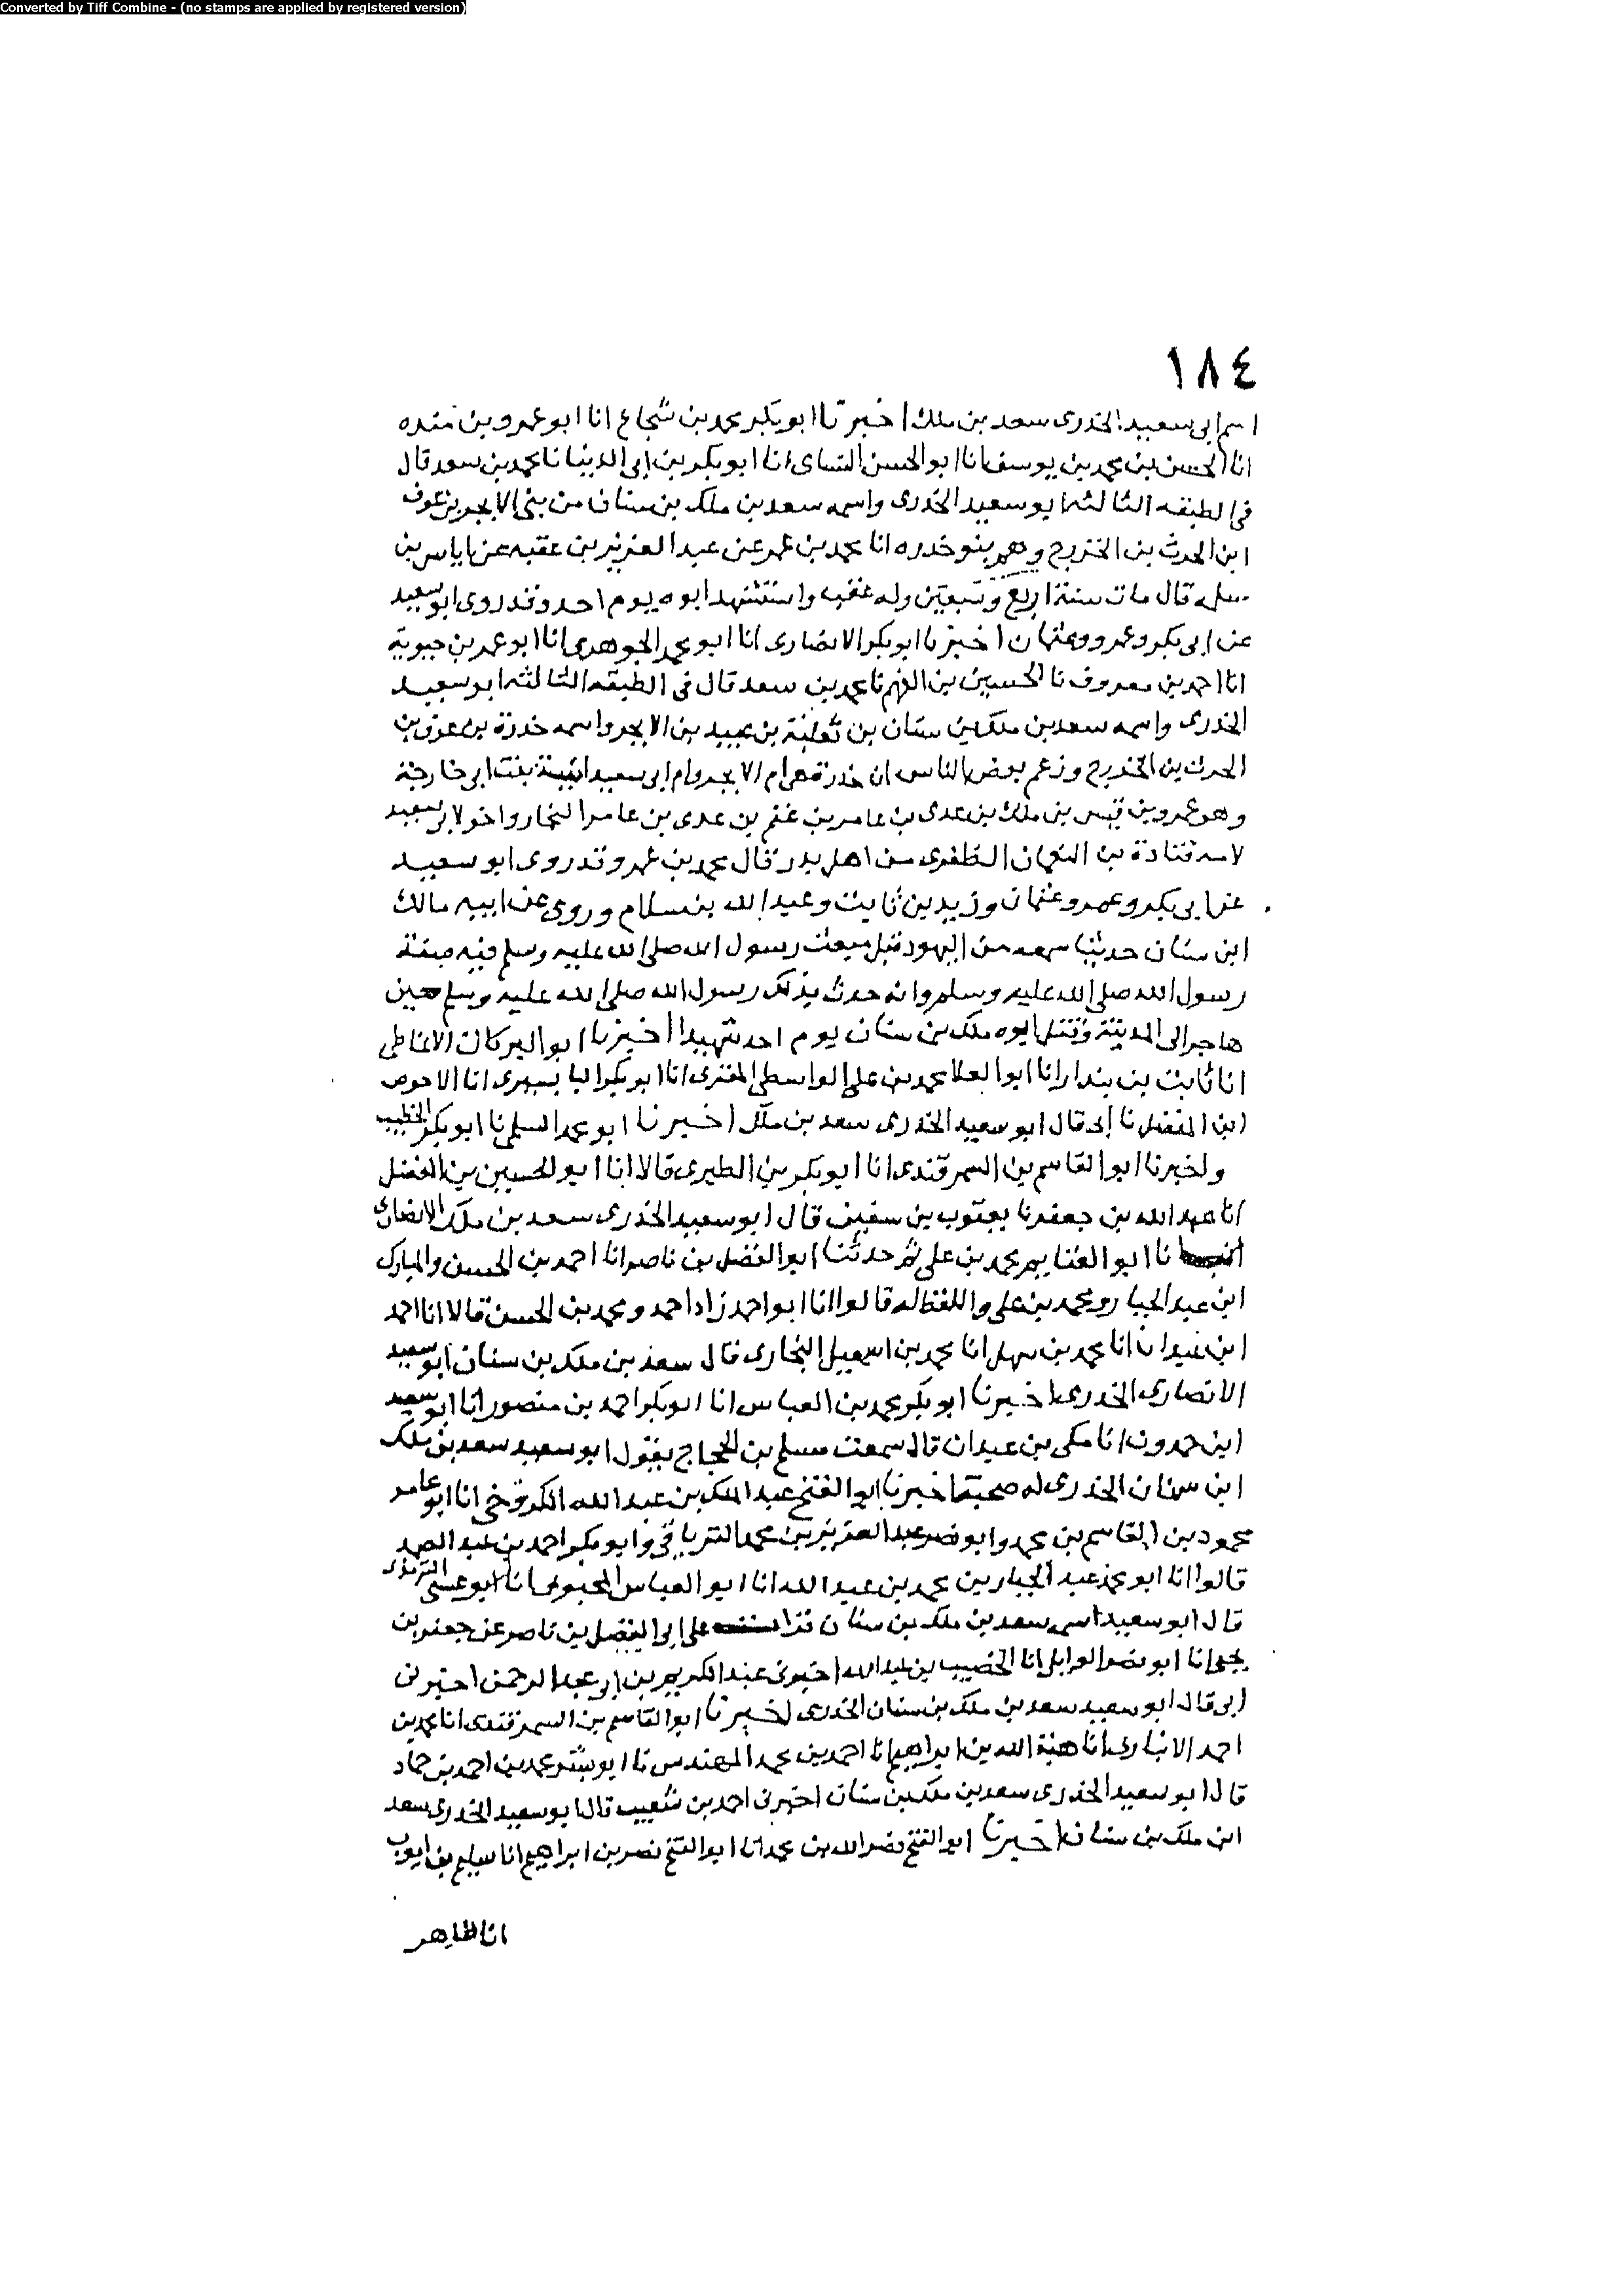 Converted by Tiff Combine - (no stamps are applied by registered version)
١٨٤
اسم ابى سعيد الخدرى سعد بن ملك اخبرنا ابو بكر محمد بن شجاع انا ابو عمرو بن منده
انا الحسن بن محمد بن يوسف انا ابو الحسن اللنباى انا ابو بكر بن ابى الدنيا نا محمد بن سعد قال
فى الطبقه الثالثه ابو سعيد الخدرى واسمه سعد بن ملك بن سنان من بنى الابجر بن عوف
ابن الحرث بن الخزرج وهم بنو خدره انا محمد بن عمر عن عبد العزيز بن عقبه عن اياس بن
سلمه قال مات سنة اربع وسبعين وله عقب واستشهد ابوه يوم احد وقد روى ابو سعيد
عن ابى بكر وعمر وعثمان اخبرنا ابو بكر الانصارى انا ابو محمد الجوهرى انا ابو عمر بن حيوية
انا احمد بن معروف نا الحسين بن الفهم نا محمد بن سعد قال فى الطبقه الثالثه ابو سعيد
الخدرى واسمه سعد بن ملك بن سنان بن ثعلبة بن عبيد بن الابجر واسمه خدرة بن عوف بن
الحرث بن الخزرج وزعم بعض الناس ان خدرة هى ام الابجر وام ابى سعيد انيسة بنت ابى خارجة
وهو عمرو بن قيس بن ملك بن عدى بن عامر بن غنم بن عدى بن عامر النجار واخو لابى سعيد
لامه قتادة بن النعمان الظفرى من اهل بدر قال محمد بن عمر وقد روى ابو سعيد
عن ابى بكر وعمر وعثمان وزيد بن ثابت وعبد الله بن سلام وروى عن ابيه مالك
ابن سنان حديثا سمعه من اليهود قبل مبعث رسول الله صلى الله عليه وسلم فيه صفة
رسول الله صلى الله عليه وسلم وانه حدث بذلك رسول الله صلى الله عليه وسلم حين
هاجر الى المدينة وقتل ابوه ملك بن سنان يوم احد شهيدا اخبرنا ابو البركات الانماطى
انا ثابت بن بندار انا ابو العلا محمد بن على الواسطى المقرى انا ابو بكر البابسيرى انا الاحوص
ابن المفضل نا ابى قال ابو سعيد الخدرى سعد بن ملك اخبرنا ابو محمد السلمى نا ابو بكر الخطيب
واخبرنا ابو القاسم بن السمرقندى انا ابو بكر بن الطبرى قالا انا ابو الحسين بن الفضل
انا عبد الله بن جعفر نا يعقوب بن سفين قال ابو سعيد الخدرى سعد بن ملك الانصارى
نا ابو الغنايم محمد بن على ثم حدثنا ابو الفضل بن ناصر انا احمد بن الحسن والمبارك
ابن عبد الجبار ومحمد بن على واللفظ له قالوا انا ابو احمد زاد احمد ومحمد بن الحسن قالا انا احمد
ابن عبدان انا محمد بن سهل انا محمد بن اسمعيل البخارى قال سعد بن ملك بن سنان ابو سعيد
الانصارى الخدرى اخبرنا ابو بكر محمد بن العباس انا ابو بكر احمد بن منصور انا ابو سعيد
ابن حمدون انا مكى بن عبدان قال سمعت مسلم بن الحجاج يقول ابو سعيد سعد بن ملك
ابن سنان الخدرى له صحبة اخبرنا ابو الفتح عبد الملك بن عبد الله الكروخى انا ابو عامر
محمود بن القاسم بن محمد وابو نصر عبد العزيز بن محمد الترياقى وابو بكر احمد بن عبد الصمد
قالوا انا ابو محمد عبد الجبار بن محمد بن عبد الله انا ابو العباس المحبوبى انا ابو عيسى الترمذى
قال ابو سعيد اسمه سعد بن ملك بن سنان قرات على ابى الفضل بن ناصر عن جعفر بن
يحيى انا ابو نصر الوايلى انا الخصيب بن عبد الله اخبرنى عبد الكريم بن ابى عبد الرحمن اخبرنى
ابى قال ابو سعيد سعد بن ملك بن سنان الخدرى اخبرنا ابو القاسم بن السمرقندى انا محمد بن
احمد الانبارى انا هبة الله بن ابراهيم انا احمد بن محمد المهندس نا ابو بشر محمد بن احمد بن حماد
قال ابو سعيد الخدرى سعد بن ملك بن سنان اخبرنى احمد بن شعيب قال ابو سعيد الخدرى سعد
ابن ملك بن سنان اخبرنا ابو الفتح نصر الله بن محمد انا ابو الفتح نصر بن ابراهيم انا سليم بن ايوب
انا طاهر